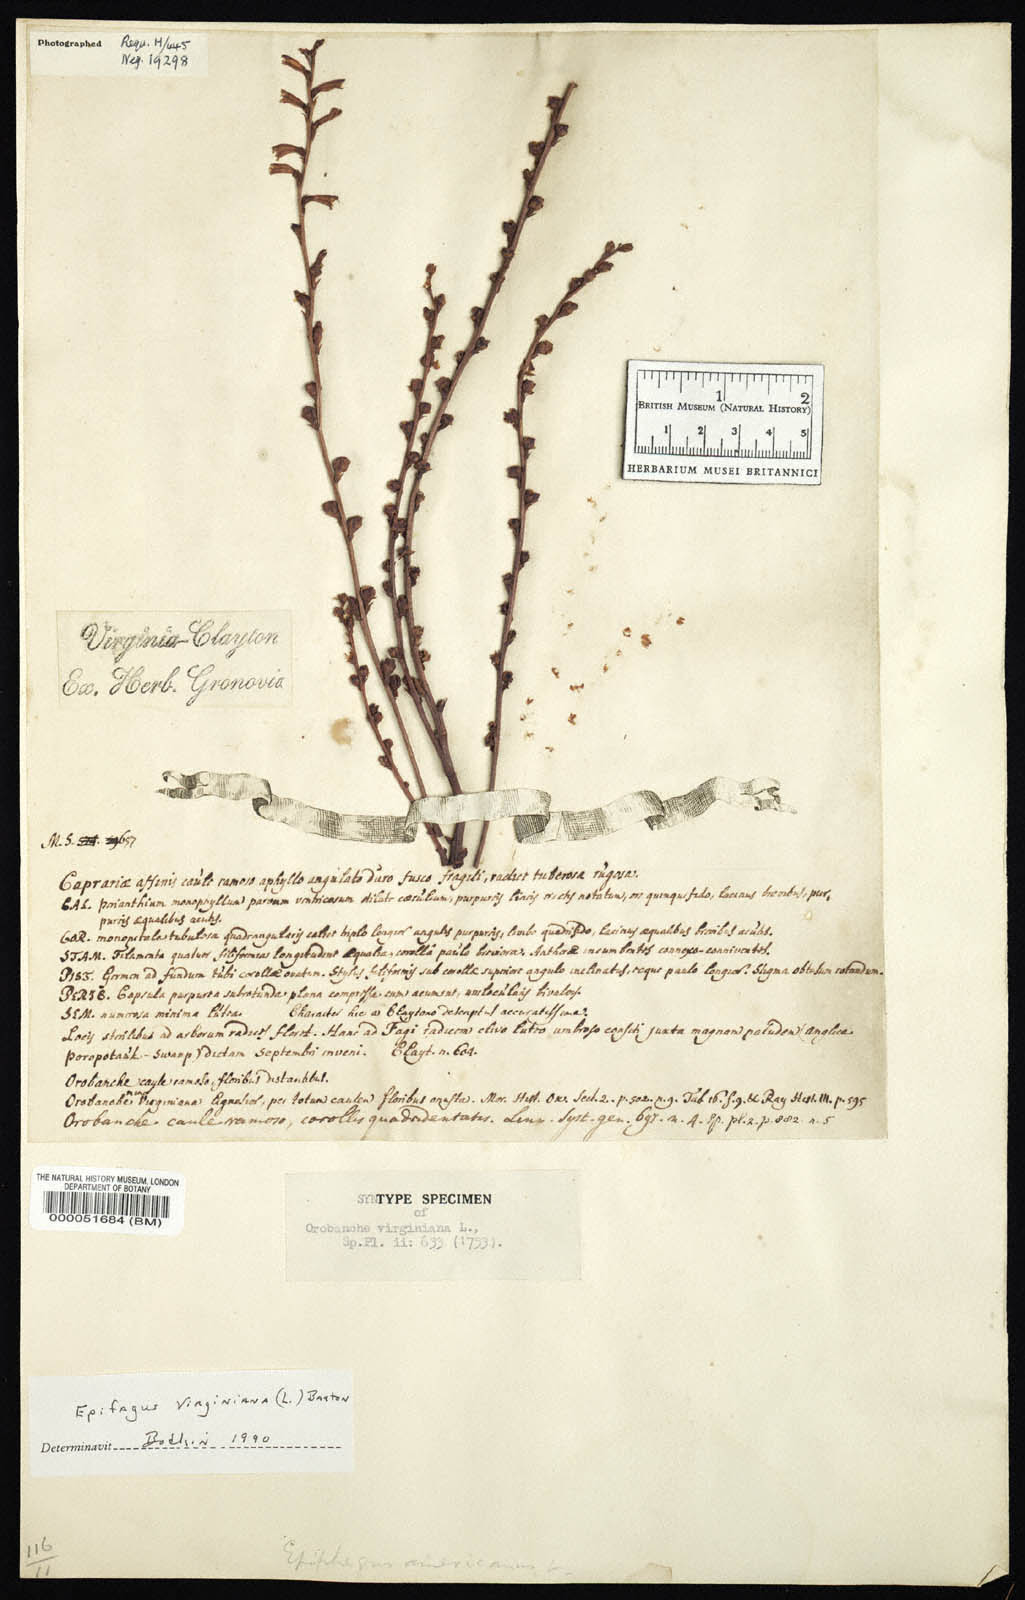 Photographed Requ. H/445
Neg. 19298
1 2
BRITISH MUSEUM (NATURAL HISTORY)
1 2 3 4 5
HERBARIUM MUSEI BRITANNICI
Virginia-Clayton
Ex. Herb. Gronovia
M. S. 657
Caprariæ affinis caule ramoso aphyllo angulato duro fusco fragili, radice tuberosa rugosa.
CAL. perianthium monophyllum parvum ventricosum purpureis lineis erectis notatum, ore quinquefido, laciniis brevibus, pur,
pureis æqualibus acutis.
COR. monopetala tubulosa quadrangularis calice triplo longior angulis purpureis, limbo quadrifido, laciniis æqualibus brevibus acutis.
STAM. Filamenta quatuor filiformia longitudine æqualia, corolla paulo breviora. Antheræ incumbentes connexo-conniventes.
PIST. Germen ad fundum tubi corollæ ovatum. Stylus filiformis sub corollæ superiore angulo inclinatus, eaque paulo longior. Stigma obtusum rotundum.
PERIC. Capsula purpurea subrotunda plana compressa cum acumine, unilocularis bivalvis.
SEM. numerosa minima lutea. Character hic a Claytono descriptus accuratissime.
Locis sterilibus ad arborum radices floret. Hanc ad Fagi radicem clivo luteo umbroso consiti juxta magnam paludem (anglice
Poropotank-Swamp) dictam Septembri inveni. Clayt. n. 604.
Orobanche caule ramoso, floribus distantibus.
Orobanche Virginiana per totum caulem floribus onusta. Mor. Hist. Oxo. Sect. 2. p. 502. n. 9. Tab 16. f. 9. & Ray Hist. III. p. 595
Orobanche caule ramoso, corollis quadridentatis. Linn. Syst. gen. 697. n. 4. Sp. pl. 2. p. 882. n. 5
THE NATURAL HISTORY MUSEUM, LONDON
DEPARTMENT OF BOTANY
000051684 (BM)
SYNTYPE SPECIMEN
of
Orobanche virginiana L.,
Sp.Pl. ii: 633 (1753).
Epifagus virginiana (L.) Barton
Determinavit Bodkin 1990
116
11
Epiphegus americanus